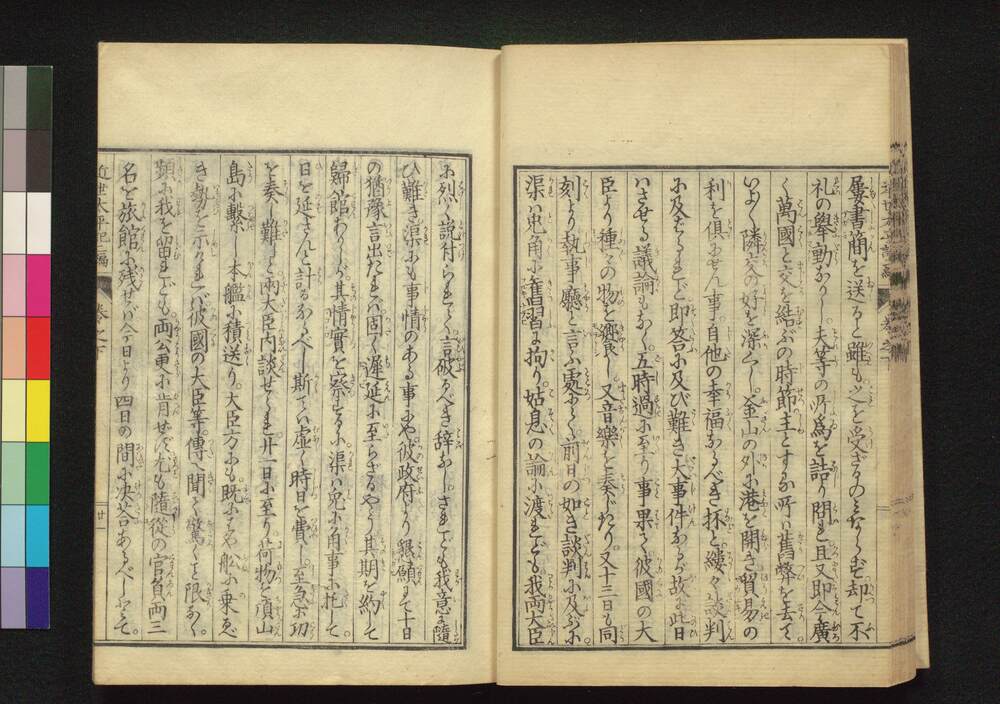 屡書簡を送ると雖も之を受ざるのミならず却て不
礼の擧動ありし夫等の所為を詰り問ひ且又即今廣
く萬國と交を結ぶの時節主とする所ハ舊弊を去て
いよ〳〵隣交の好を深くし釜山の外に港を開き貿易の
利を倶にせん事自他の幸福なるべき抔と縷々談判
に及ぶらるゝに即答に及び難き大事件なるが故に此日
ハさせる議論もなく五時過に至り事果て彼國の大
臣より種々の物を饗し又音樂を奏したり又十三日も同
刻より執事廳と言ふ處にて前日の如き談判に及ぶに
渠ハ兎角に舊習に拘り姑息の論に渡れども我両大臣
に烈く説付られて言破るべき辞なしされども我意に隨
ひ難き渠にも事情のある事にや彼政府より懇願にて十日
の猶豫言出たれバ固く遅延に至らざるやう其期を約して
歸館ありしが其情實を察するに渠ハ兎に角事に托し
日を延さんと計るなるべし斯てハ虚く時日を費し至急に功
を奏し難しと両大臣内談せられ廿一日に至り荷物を頂山
島に繋し本艦に積送り大臣方にも既にはや船に乗る
き勢を示されけれバ彼國の大臣等傳へ聞て驚くこと限なく
頻に我を留れども両公更に肯ぜず尤も隨從の官員両三
名を旅館に残せバ今日より四日の間に决答あるべしとて
近世太平記二編
卷之下
廿